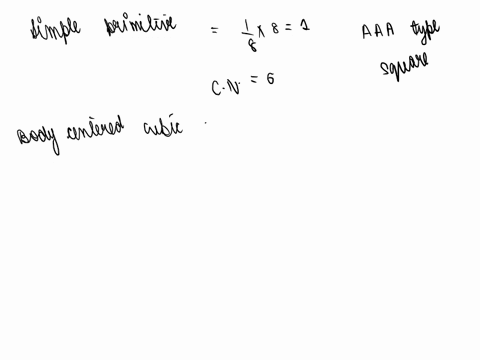 Simple primitive = 1/8 x 8 = 1 AAA type
square
C.N. = 6
Body centered cubic